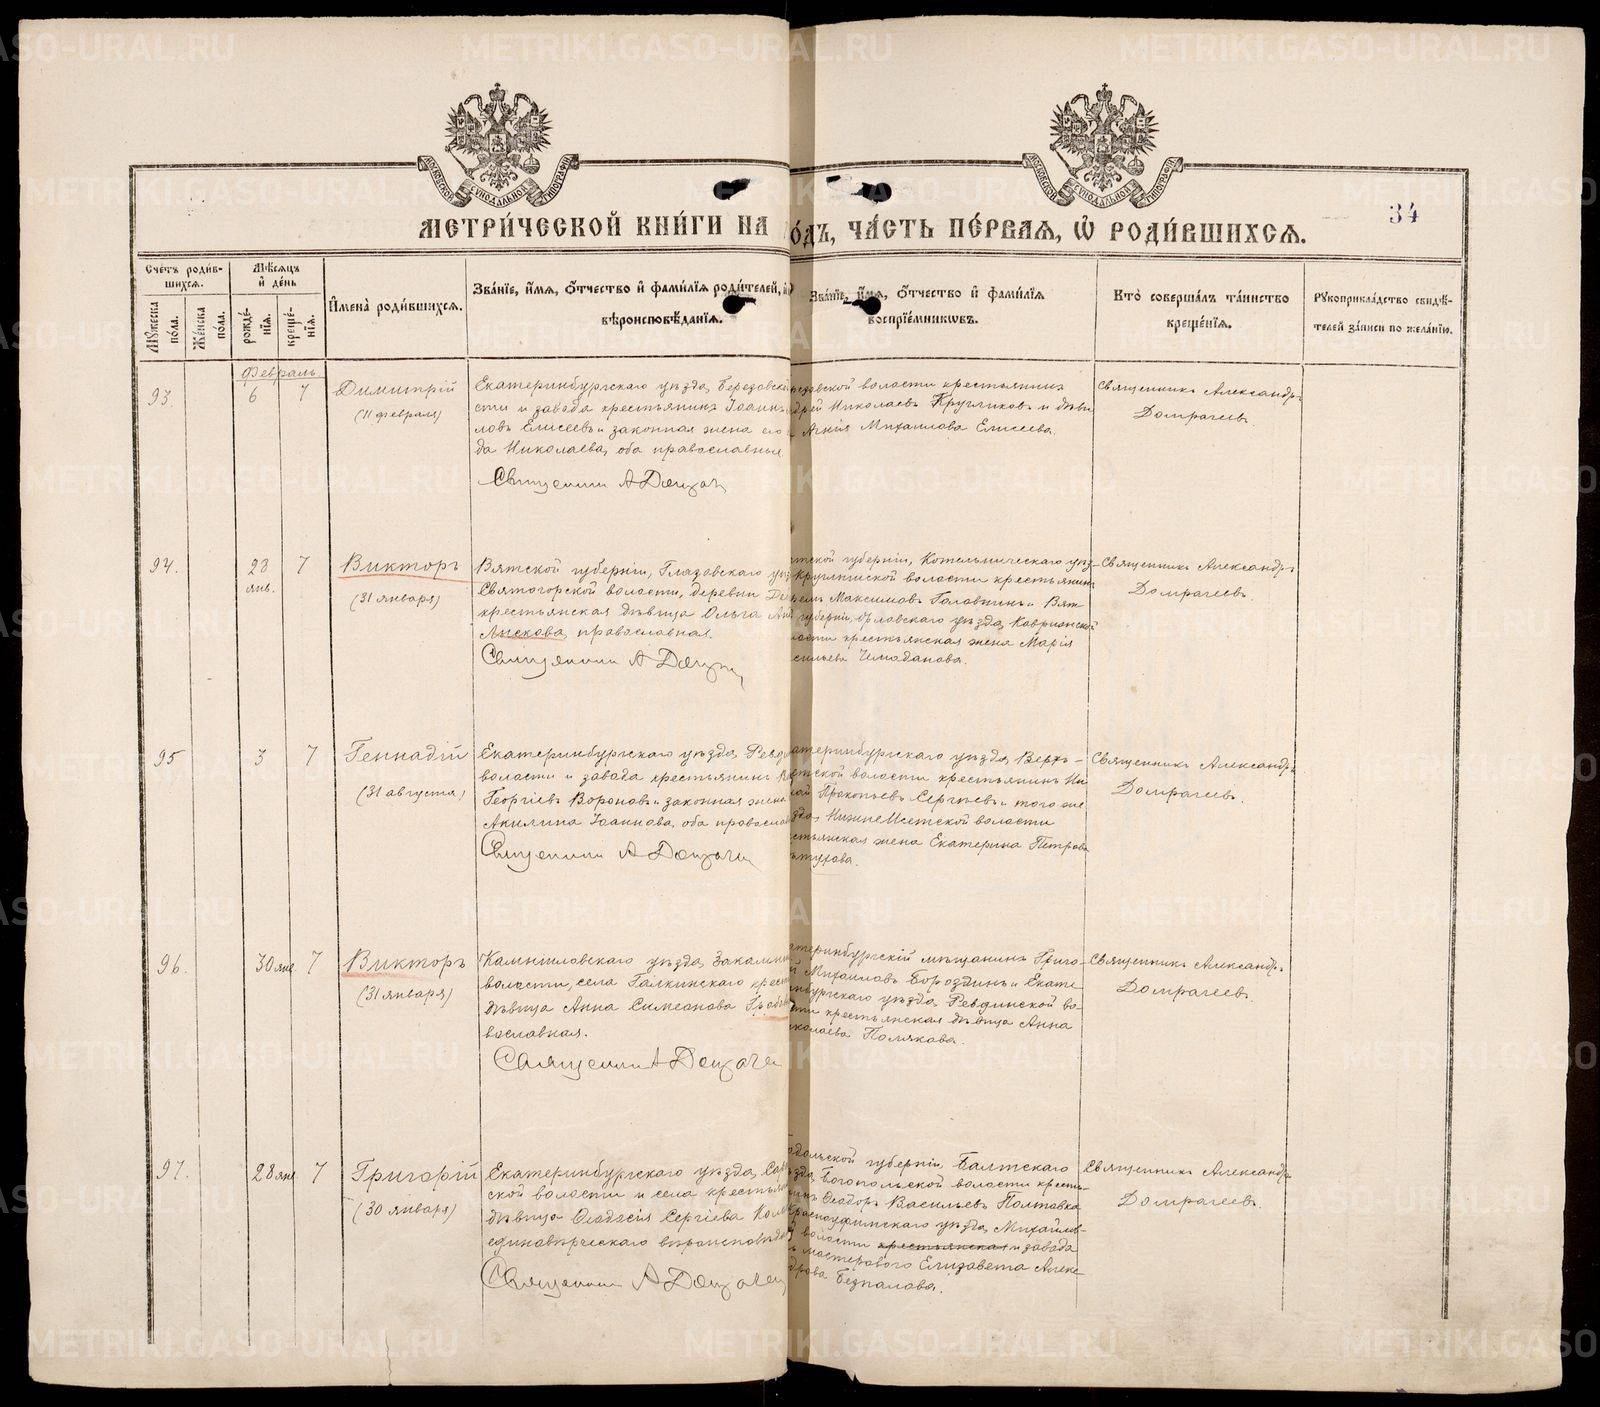 МЕТРИ́ЧЕСКОЙ КНИ́ГИ НА
ОДЪ, ЧА́СТЬ ПЕ́РВАѦ, Ѡ҆ РОДИ́ВШИХСѦ.
34
Сче́тъ роди́в-
шихсѧ.
Мѣсѧцъ
и҆ де́нь
Мꙋ́жеска
по́ла.
Же́нска
по́ла.
рожде́-
нїѧ.
креще́-
нїѧ.
И҆мена̀ роди́вшихсѧ.
Зва́нїе, и҆́мѧ, ѻ҆́тчество и҆ фами́лїѧ роди́телей, и҆
вѣроисповѣ́данїѧ.
Зва́нїе, и҆́мѧ, ѻ҆́тчество и҆ фами́лїѧ
воспрїе́мниковъ.
Кто̀ соверша́лъ та́инство
креще́нїѧ.
Рꙋкоприкла́дство свидѣ́-
телей за́писи по жела́нїю.
Февраль
93.
6
7
Димитрій
(11 февраля)
Екатеринбургскаго уѣзда, Березовск
сти и завода крестьянинъ Іоаннъ
ловъ Елисеевъ и законная жена его
да Николаева, оба православные
Священник А Домрачев
волости крестьянинъ
Николаевъ Кругликовъ и дѣви
Агнія Михаилова Елисеева.
Священникъ Александръ
Домрачевъ.
94.
28
янв.
7
Викторъ
(31 января)
Вятской губерніи, Глазовскаго уѣз
Святогорской волости, деревни
крестьянская дѣвица Ольга
Лыскова, православная.
Священник А Домрач
тской губерніи, Котельническаго уѣз-
волости крестьянинъ
Максимовъ Головнинъ и Вят
губерніи, Орловскаго уѣзда,
лости крестьянская жена Марія
сильева Чемоданова.
Священникъ Александръ
Домрачевъ.
95
3
7
Геннадій
(31 августа)
Екатеринбургскаго уѣзда, Ревд
волости и завода крестьянинъ
Георгіевъ Вороновъ и законная жена
Акилина Іоаннова, оба православ
Священник А Домрачев
атеринбургскаго уѣзда, Верхъ-
тской волости крестьянинъ Ни
лай Прокопьевъ Сергѣевъ и того же
зда, НижнеИсетской волости
стьянская жена Екатерина Петрова
Священникъ Александръ
Домрачевъ.
96.
30 янв
7
Викторъ
(31 января)
Камышловскаго уѣзда,
волости, села Галкинскаго крест
дѣвица Анна Симеонова
вославная.
Священник А Домрачев
теринбургскій мѣщанинъ Григо-
й Михаиловъ Бороздинъ и Екате
инбургскаго уѣзда, Ревдинской во-
сти крестьянская дѣвица Анна
иколаева Полякова.
Священникъ Александръ
Домрачевъ.
97.
28 янв
7
Григорій
(30 января)
Екатеринбургскаго уѣзда,
ской волости и села крестьян
дѣвица Ѳеодосія Сергіева
единовѣрческаго вѣроисповѣдан
Священник А Домрачев
одольской губерніи, Балтскаго
зда, Богопольской волости кресть-
инъ Ѳеодоръ Васильевъ Полтавка
Красноуфимскаго уѣзда, Михайлов-
й волости крестьянская и завода
мастерового Елизавета Алекс-
дрова Безпалова.
Священникъ Александръ
Домрачевъ.
METRIKI.GASO-URAL.RU